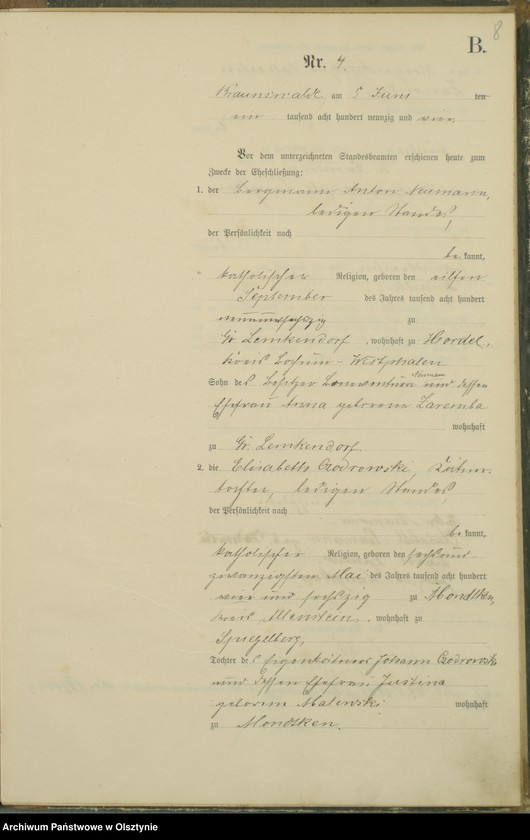 8
B.
Nr. 4.
Braunswalde am 5 Juni ten
ein tausend acht hundert neunzig und vier.
Vor dem unterzeichneten Standesbeamten erschienen heute zum
Zwecke der Eheschließung:
1. der Bergmann Anton Neumann,
ledigen Standes,
der Persönlichkeit nach
be kannt,
katholischer Religion, geboren den elften
September des Jahres tausend acht hundert
neunundsechszig zu
Gr Lemkendorf, wohnhaft zu Hordel,
Kreis Bochum - Westphalen
Sohn des Besitzer Bonaventura Neumann und dessen
Ehefrau Anna geborene Zaremba
wohnhaft
zu Gr Lemkendorf.
2. die Elisabeth Czodrowski, Käthner-
tochter, ledigen Standes,
der Persönlichkeit nach
be kannt,
katholischer Religion, geboren den sechsund-
zwanzigsten Mai des Jahres tausend acht hundert
vier und sechszig zu Mondtken,
Kreis Allenstein, wohnhaft zu
Spiegelberg,
Tochter des Eigenkäthners Johann Czodrowski
und dessen Ehefrau Justina
geborene Malewski wohnhaft
zu Mondtken.
Archiwum Państwowe w Olsztynie